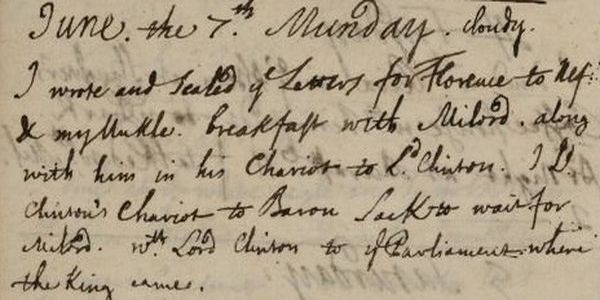 June. the 7.th Munday. cloudy.
I wrote and Sealed ye Letters for Florence to Nef:
& my Unkle. breakfast with Milord. along
with him in his Chariot to Ld. Clinton. I Ld.
Clinton's Chariot to Baron Sack to wait for
Milord. wth. Lord Clinton to ye Parliament where
the King came.